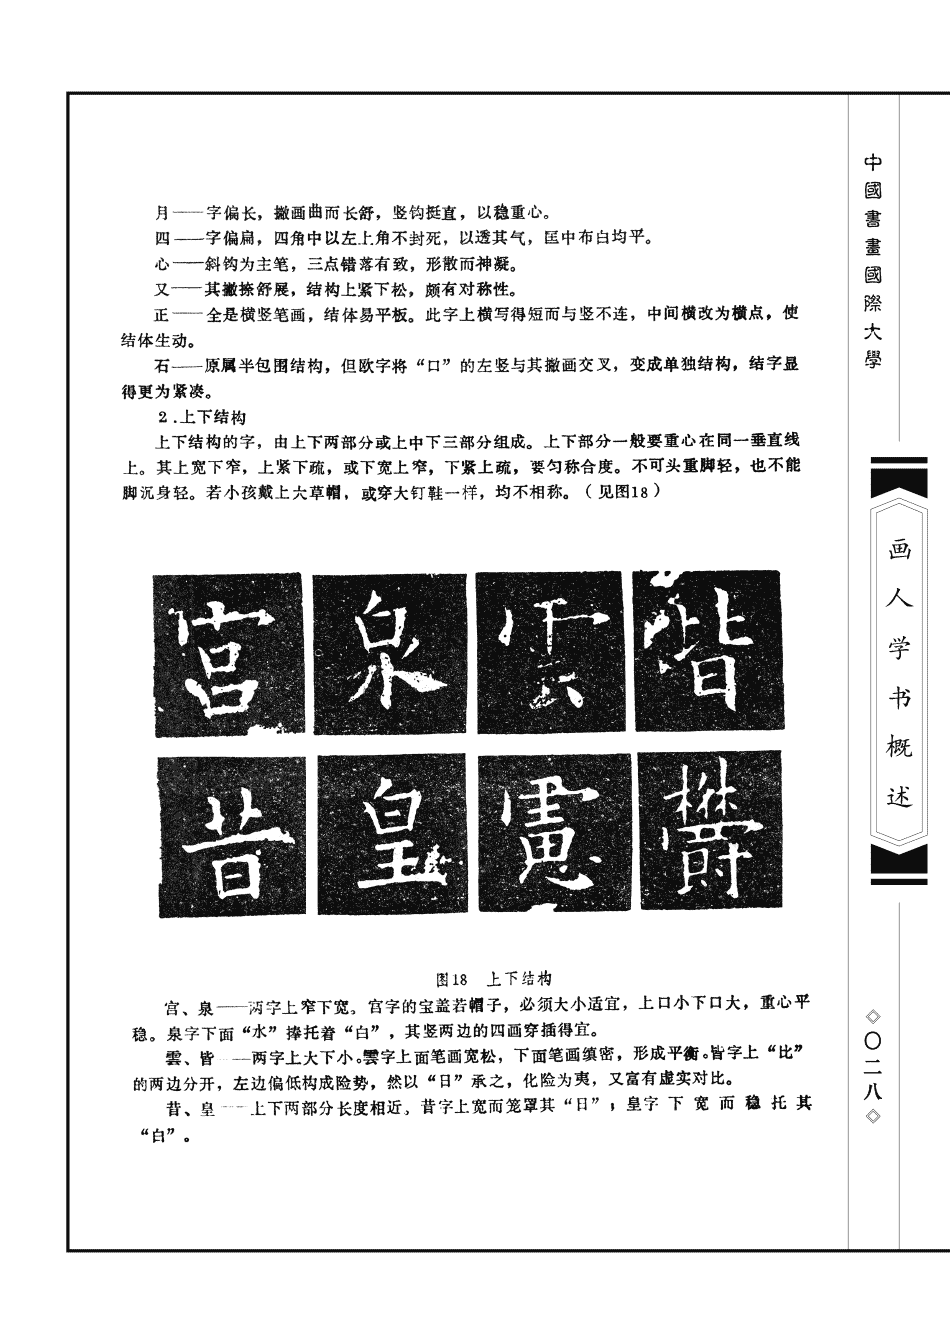 月——字偏长，撇画曲而长舒，竖钩挺直，以稳重心。
四——字偏扁，四角中以左上角不封死，以透其气，匡中布白均平。
心——斜钩为主笔，三点错落有致，形散而神凝。
又——其撇捺舒展，结构上紧下松，颇有对称性。
正——全是横竖笔画，结体易平板。此字上横写得短而与竖不连，中间横改为横点，使
结体生动。
石——原属半包围结构，但欧字将“口”的左竖与其撇画交叉，变成单独结构，结字显
得更为紧凑。
2.上下结构
上下结构的字，由上下两部分或上中下三部分组成。上下部分一般要重心在同一垂直线
上。其上宽下窄，上紧下疏，或下宽上窄，下紧上疏，要匀称合度。不可头重脚轻，也不能
脚沉身轻。若小孩戴上大草帽，或穿大钉鞋一样，均不相称。（见图18）
宫 泉 雲 皆
昔 皇 憲 欝
图18 上下结构
宫、泉——两字上窄下宽。宫字的宝盖若帽子，必须大小适宜，上口小下口大，重心平
稳。泉字下面“水”捧托着“白”，其竖两边的四画穿插得宜。
雲、皆——两字上大下小。雲字上面笔画宽松，下面笔画缜密，形成平衡。皆字上“比”
的两边分开，左边偏低构成险势，然以“日”承之，化险为夷，又富有虚实对比。
昔、皇——上下两部分长度相近。昔字上宽而笼罩其“日”；皇字下宽而稳托其
“白”。
中國書畫國際大學
画人学书概述
◇〇二八◇